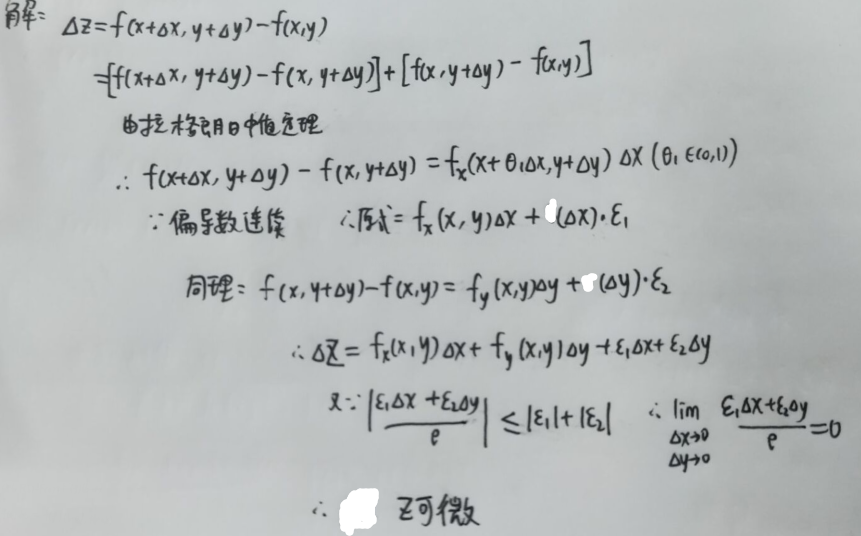 解: ΔZ=f(x+Δx, y+Δy)-f(x,y)
=[f(x+Δx, y+Δy)-f(x, y+Δy)]+[f(x, y+Δy)-f(x,y)]
由拉格朗日中值定理
∴ f(x+Δx, y+Δy)-f(x, y+Δy)=fₓ(x+θ₁Δx, y+Δy)Δx (θ₁∈(0,1))
∵偏导数连续 ∴原式=fₓ(x,y)Δx+(Δx)·ε₁
同理: f(x, y+Δy)-f(x,y)=f_y(x,y)Δy+(Δy)·ε₂
∴ΔZ=fₓ(x,y)Δx+f_y(x,y)Δy+ε₁Δx+ε₂Δy
又∵|(ε₁Δx+ε₂Δy)/ρ|≤|ε₁|+|ε₂| ∴ lim Δx→0 Δy→0 (ε₁Δx+ε₂Δy)/ρ=0
∴ Z可微